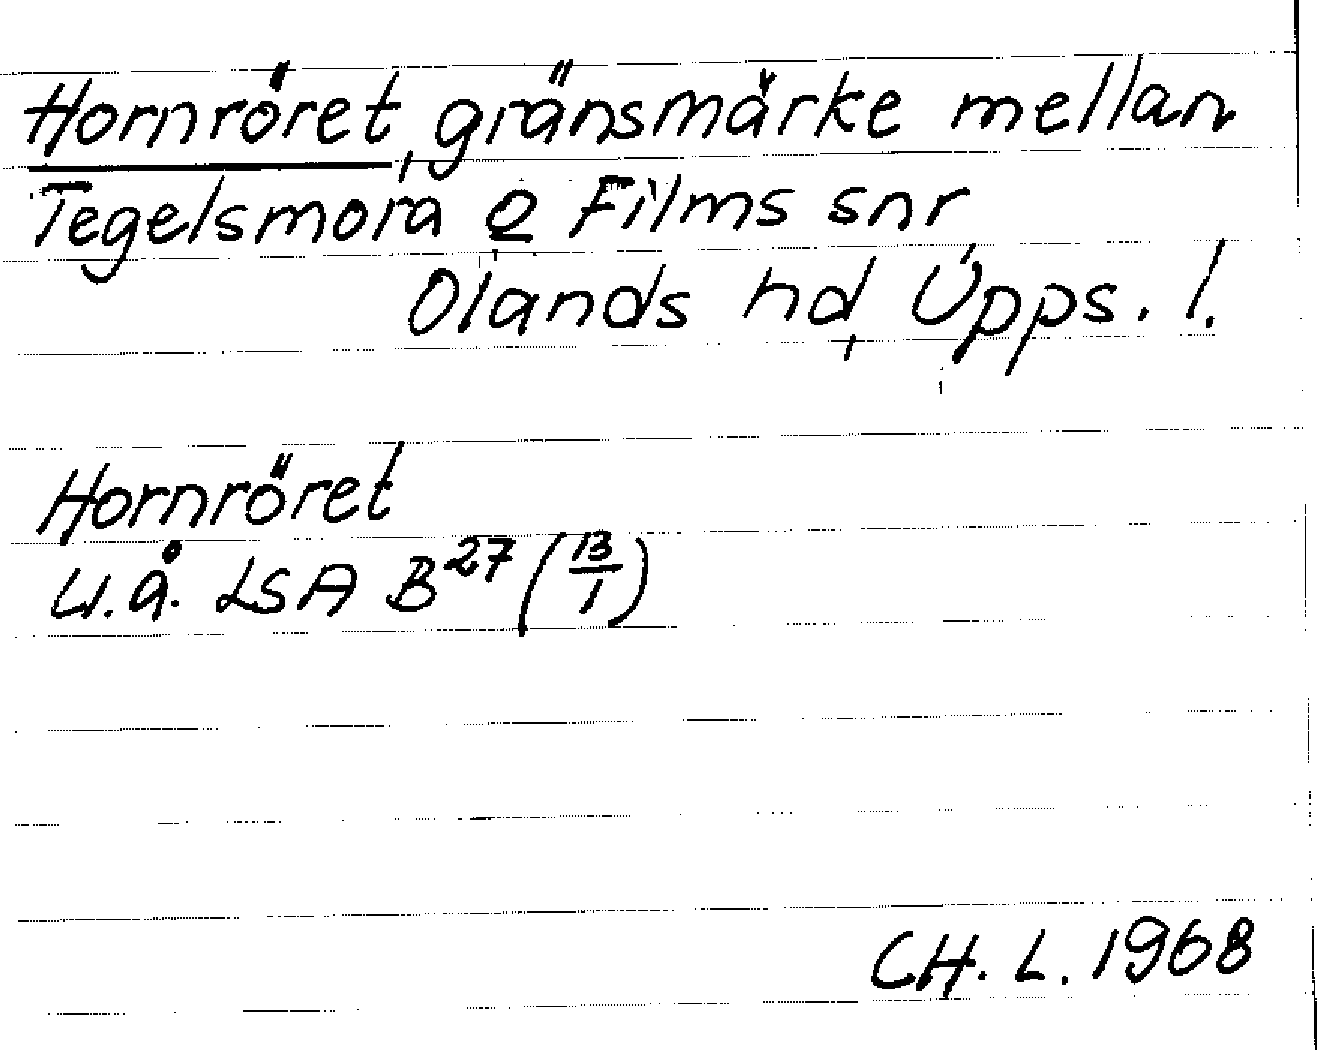 Hornröret, gränsmärke mellan
Tegelsmora o Films snr
Olands hd, Upps. l.
Hornröret
u.å. LSA B²⁷ (13/1)
CH. L. 1968